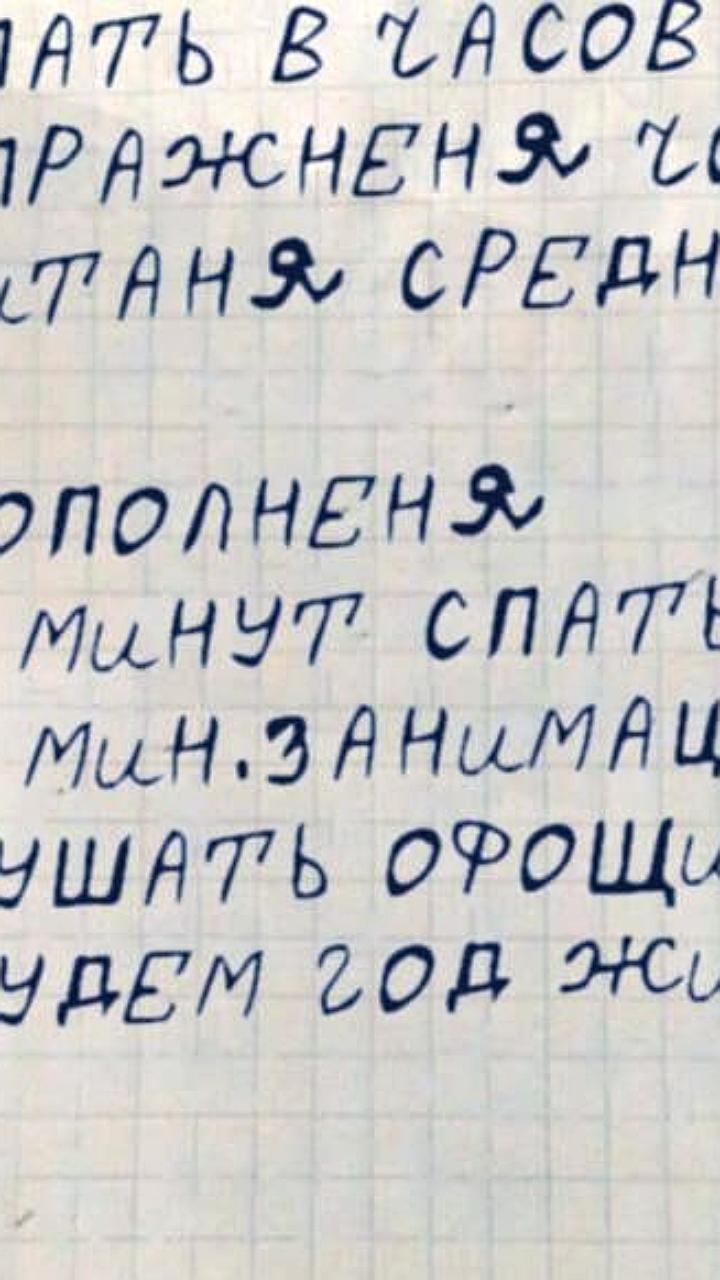 ПАТЬ В ЧАСОВ
ПРАЖНЕНЯ ЧС
ИТАНЯ СРЕДН
ОПОЛНЕНЯ
МИНУТ СПАТЬ
МИН.ЗАНИМАЦ
УШАТЬ ОФОЩИ
УДЕМ ГОД ЖИ